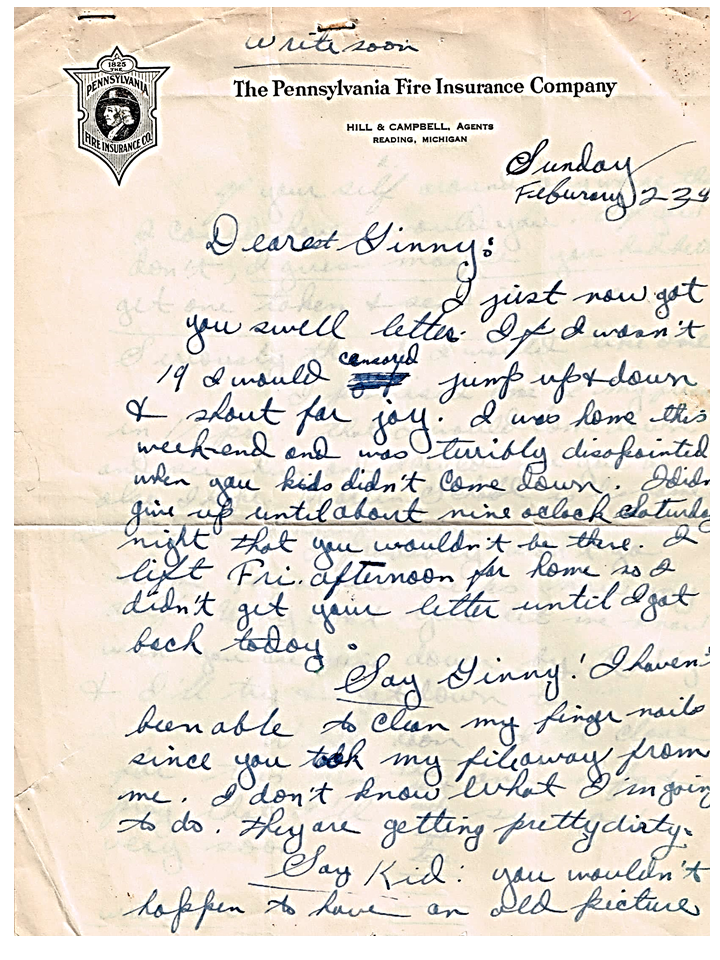 write soon
1825
THE
PENNSYLVANIA
FIRE INSURANCE CO.
The Pennsylvania Fire Insurance Company
HILL & CAMPBELL, AGENTS
READING, MICHIGAN
Sunday
Feburary 23
Dearest Ginny:
I just now got
you swell letter. If I wasn't
censored
19 I would jump up & down
& shout for joy. I was home this
week-end and was terribly disapointed
when you kids didn't come down. I didn
give up until about nine oclock Saturday
night that you wouldn't be there. I
lift Fri. afternoon for home so I
didn't get your letter until I got
back today.
Say Ginny! I haven'
been able to clean my finger nails
since you took my file away from
me. I don't know what I'm going
to do. they are getting pretty dirty.
Say Kid: you wouldn't
happen to have an old picture